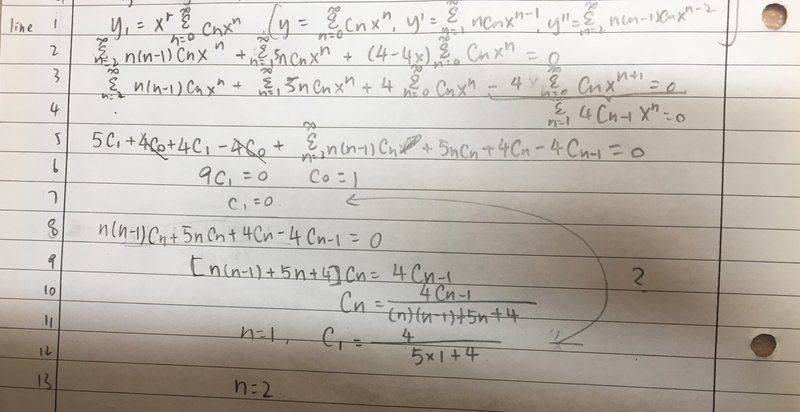 line 1 y₁ = xʳ Σ_{n=0}^∞ Cnxⁿ (y = Σ_{n=0}^∞ Cnxⁿ, y' = Σ_{n=1}^∞ nCnxⁿ⁻¹, y'' = Σ_{n=2}^∞ n(n-1)Cnxⁿ⁻²
2 Σ_{n=2}^∞ n(n-1)Cnxⁿ + Σ_{n=1}^∞ 5nCnxⁿ + (4-4x) Σ_{n=0}^∞ Cnxⁿ = 0
3 Σ_{n=2}^∞ n(n-1)Cnxⁿ + Σ_{n=1}^∞ 5nCnxⁿ + 4 Σ_{n=0}^∞ Cnxⁿ - 4 Σ_{n=0}^∞ Cnxⁿ⁺¹ = 0
4 Σ_{n=1}^∞ 4Cn-1 xⁿ = 0
5 5C₁ + 4C₀ + 4C₁ - 4C₀ + Σ_{n=2}^∞ n(n-1)Cn + 5nCn + 4Cn - 4Cn-1 = 0
6 9C₁ = 0 C₀ = 1
7 C₁ = 0
8 n(n-1)Cn + 5nCn + 4Cn - 4Cn-1 = 0
9 [n(n-1) + 5n + 4]Cn = 4Cn-1 ?
10 Cn = 4Cn-1 / (n)(n-1)+5n+4
11 n=1, C₁ = 4 / 5×1+4
12
13 n=2